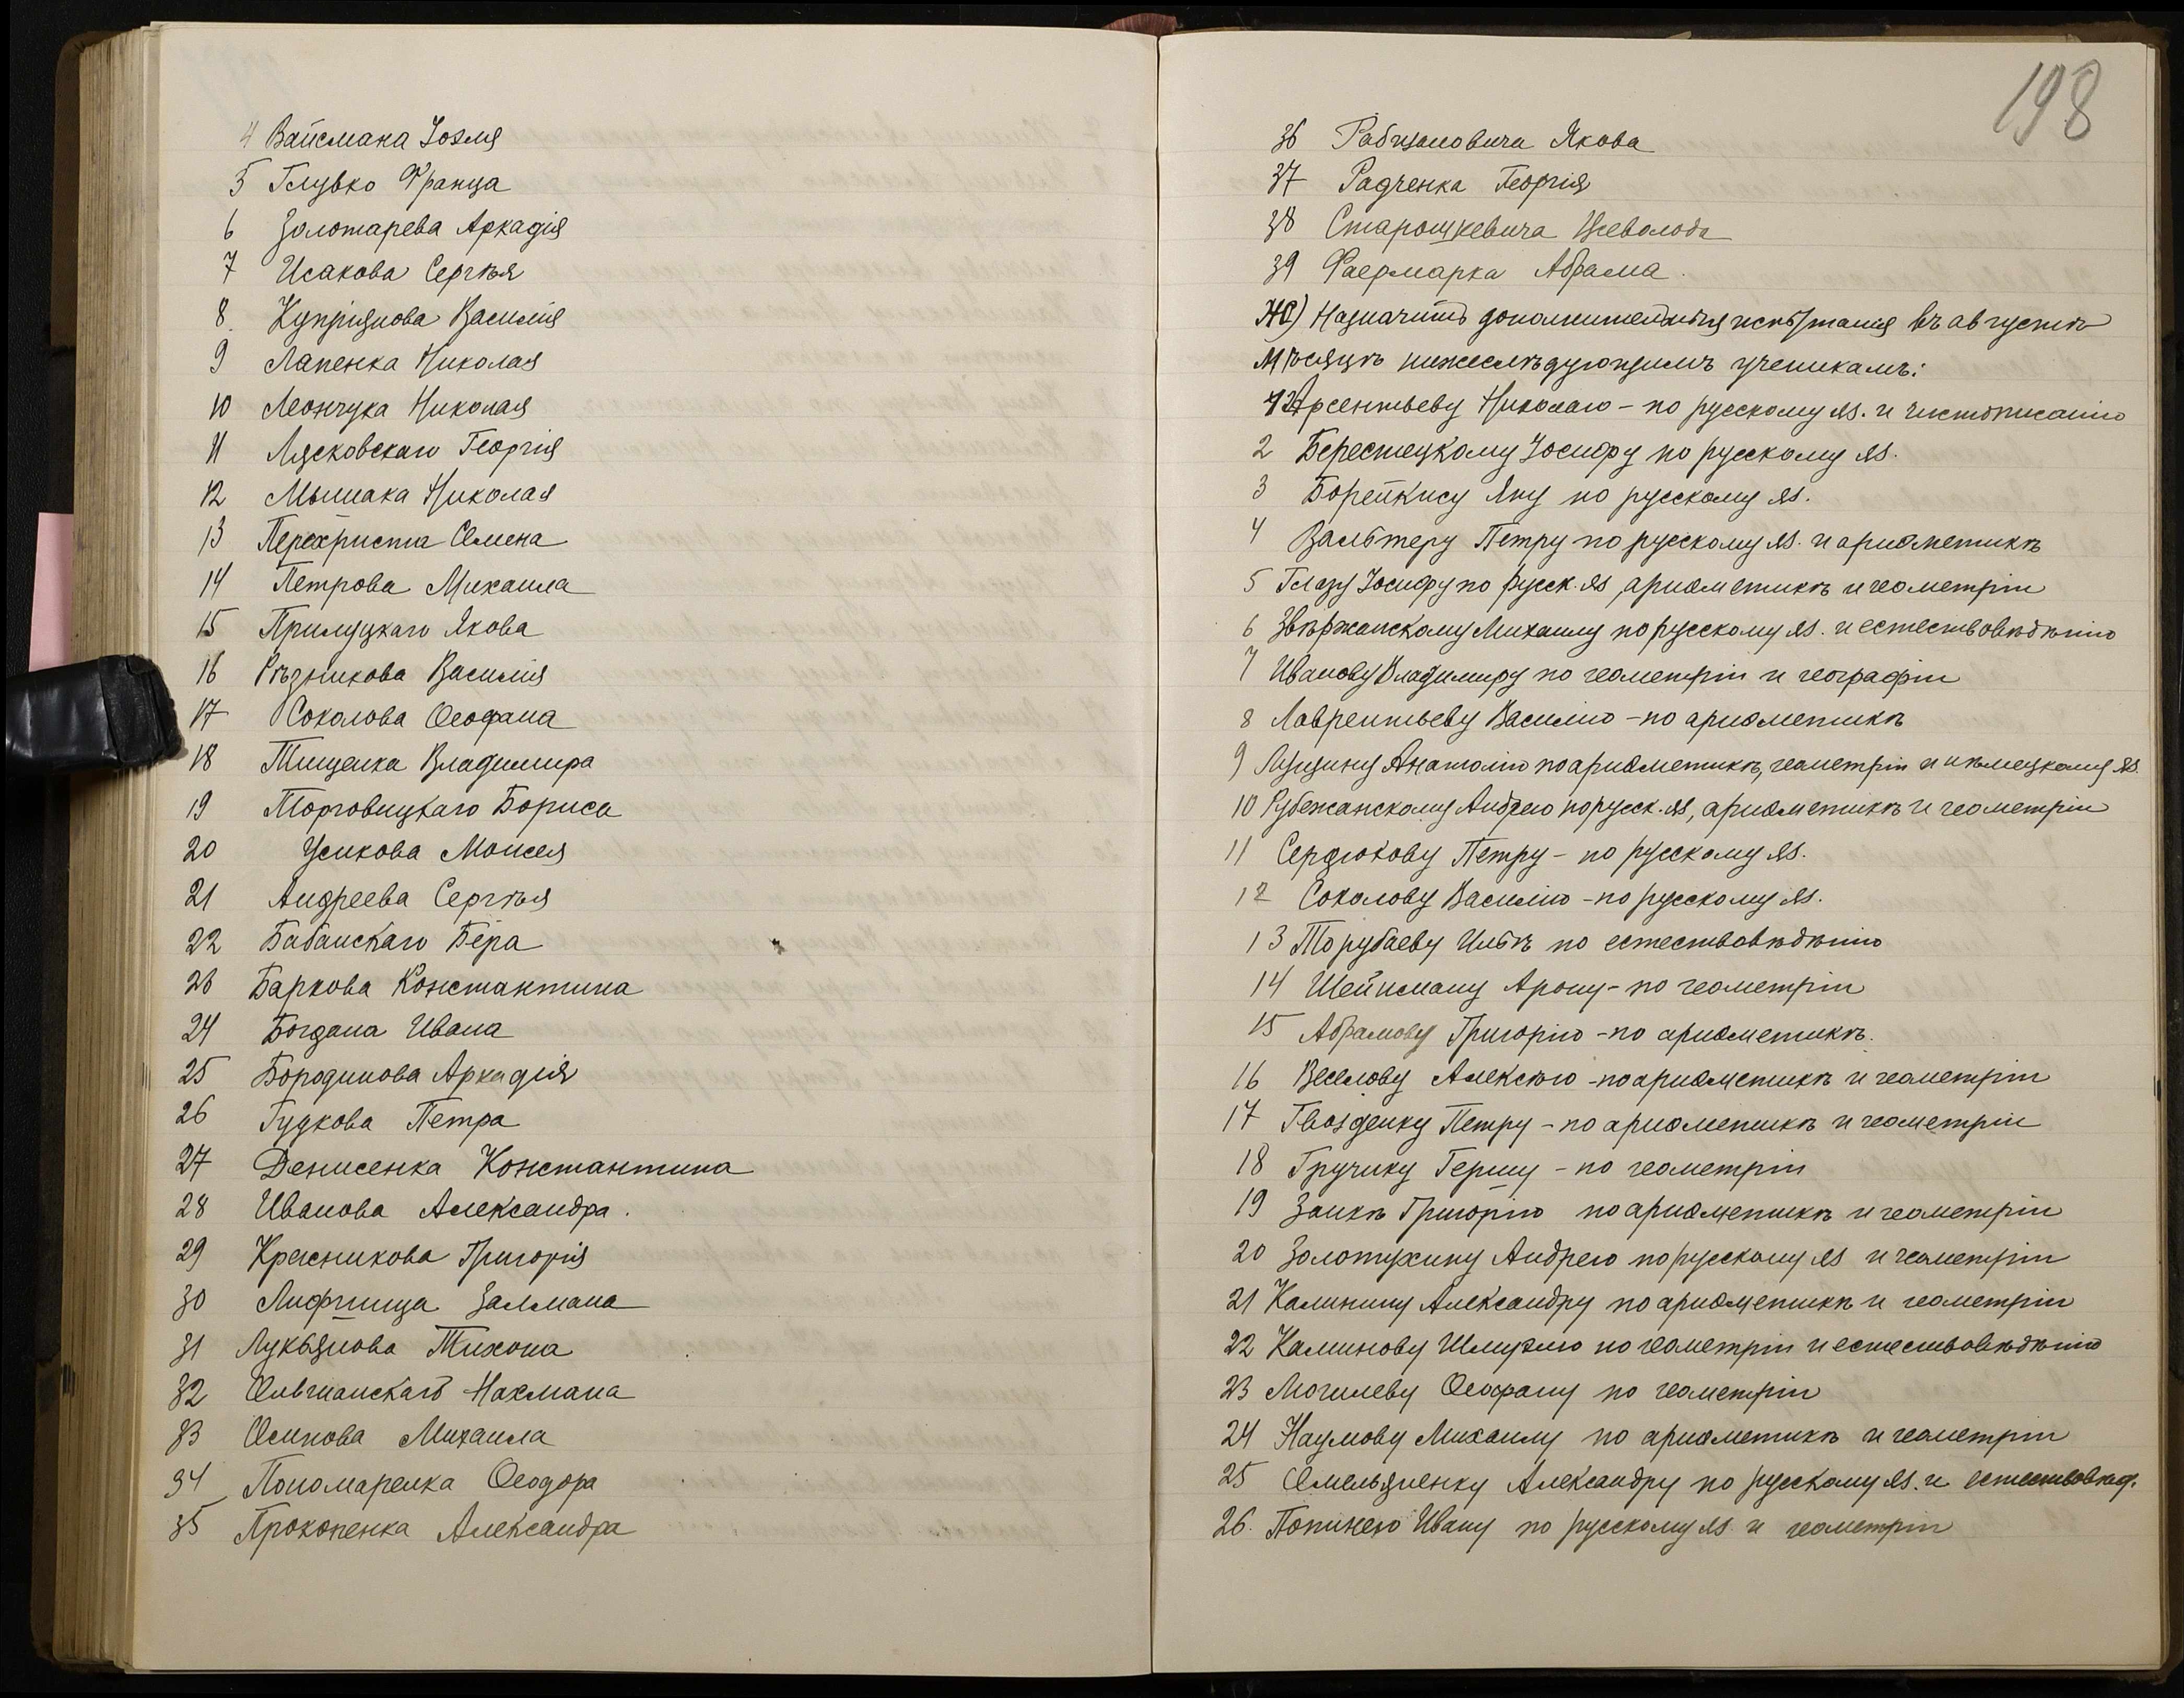 4 Вайсмана Іоэля
5 Глувко Франца
6 Золотарева Аркадія
7 Исакова Сергѣя
8. Купріянова Василія
9 Лапенка Николая
10 Леончука Николая
11 Лясковскаго Георгія
12 Мышака Николая
13 Перехриста Семена
14 Петрова Михаила
15 Прилуцкаго Якова
16 Рѣзникова Василія
17 Соколова Ѳеофана
18 Тищенка Владимира
19 Торговицкаго Бориса
20 Усикова Моисея
21 Андреева Сергѣя
22 Бабанскаго Бера
23 Баркова Константина
24 Богдана Ивана
25 Бородинова Аркадія
26 Гудкова Петра
27 Денисенка Константина
28 Иванова Александра.
29 Красникова Григорія
30 Лифшица Залмана
31 Лукьянова Тихона
32 Ольшанскаго Нахмана
33 Осипова Михаила
34 Пономаренка Ѳеодора
35 Прокопенка Александра
198
36 Рабиновича Якова
37 Радченка Георгія
38 Старошкевича Всеволода
39 Фаермарка Абрама.
Ж) Назначить дополнительныя испытанія въ августѣ
мѣсяцѣ нижеслѣдующимъ ученикамъ:
1 Арсентьеву Николаю - по русскому яз. и чистописанію
2 Берестецкому Іосифу по русскому яз.
3 Борейкису Яну по русскому яз.
4 Вальтеру Петру по русскому яз. и ариѳметикѣ
5 Глазу Іосифу по русск. яз, ариѳметикѣ и геометріи
6 Звѣржанскому Михаилу по русскому яз. и естествовѣдѣнію
7 Иванову Владимиру по геометріи и географіи
8 Лаврентьеву Василію - по ариѳметикѣ
9 Лущину Анатолію по ариѳметикѣ, геометріи и нѣмецкому яз.
10 Рубежанскому Андрею по русск. яз, ариѳметикѣ и геометріи
11 Сердюкову Петру - по русскому яз.
12 Соколову Василію - по русскому яз.
13 Торубаеву Ильѣ по естествовѣдѣнію
14 Шейнману Арону - по геометріи
15 Абрамову Григорію - по ариѳметикѣ.
16 Веселову Алексѣю - по ариѳметикѣ и геометріи
17 Гвозденку Петру - по ариѳметикѣ и геометріи
18 Гручику Гершу - по геометріи
19 Заикѣ Григорію по ариѳметикѣ и геометріи
20 Золотухину Андрею по русскому яз и геометріи
21 Калинину Александру по ариѳметикѣ и геометріи
22 Каминову Шмуэлю по геометріи и естествовѣдѣнію
23 Могилеву Ѳеофану по геометріи
24 Наумову Михаилу по ариѳметикѣ и геометріи
25 Омельяненку Александру по русскому яз. и естествовѣд.
26. Попинею Ивану по русскому яз и геометріи